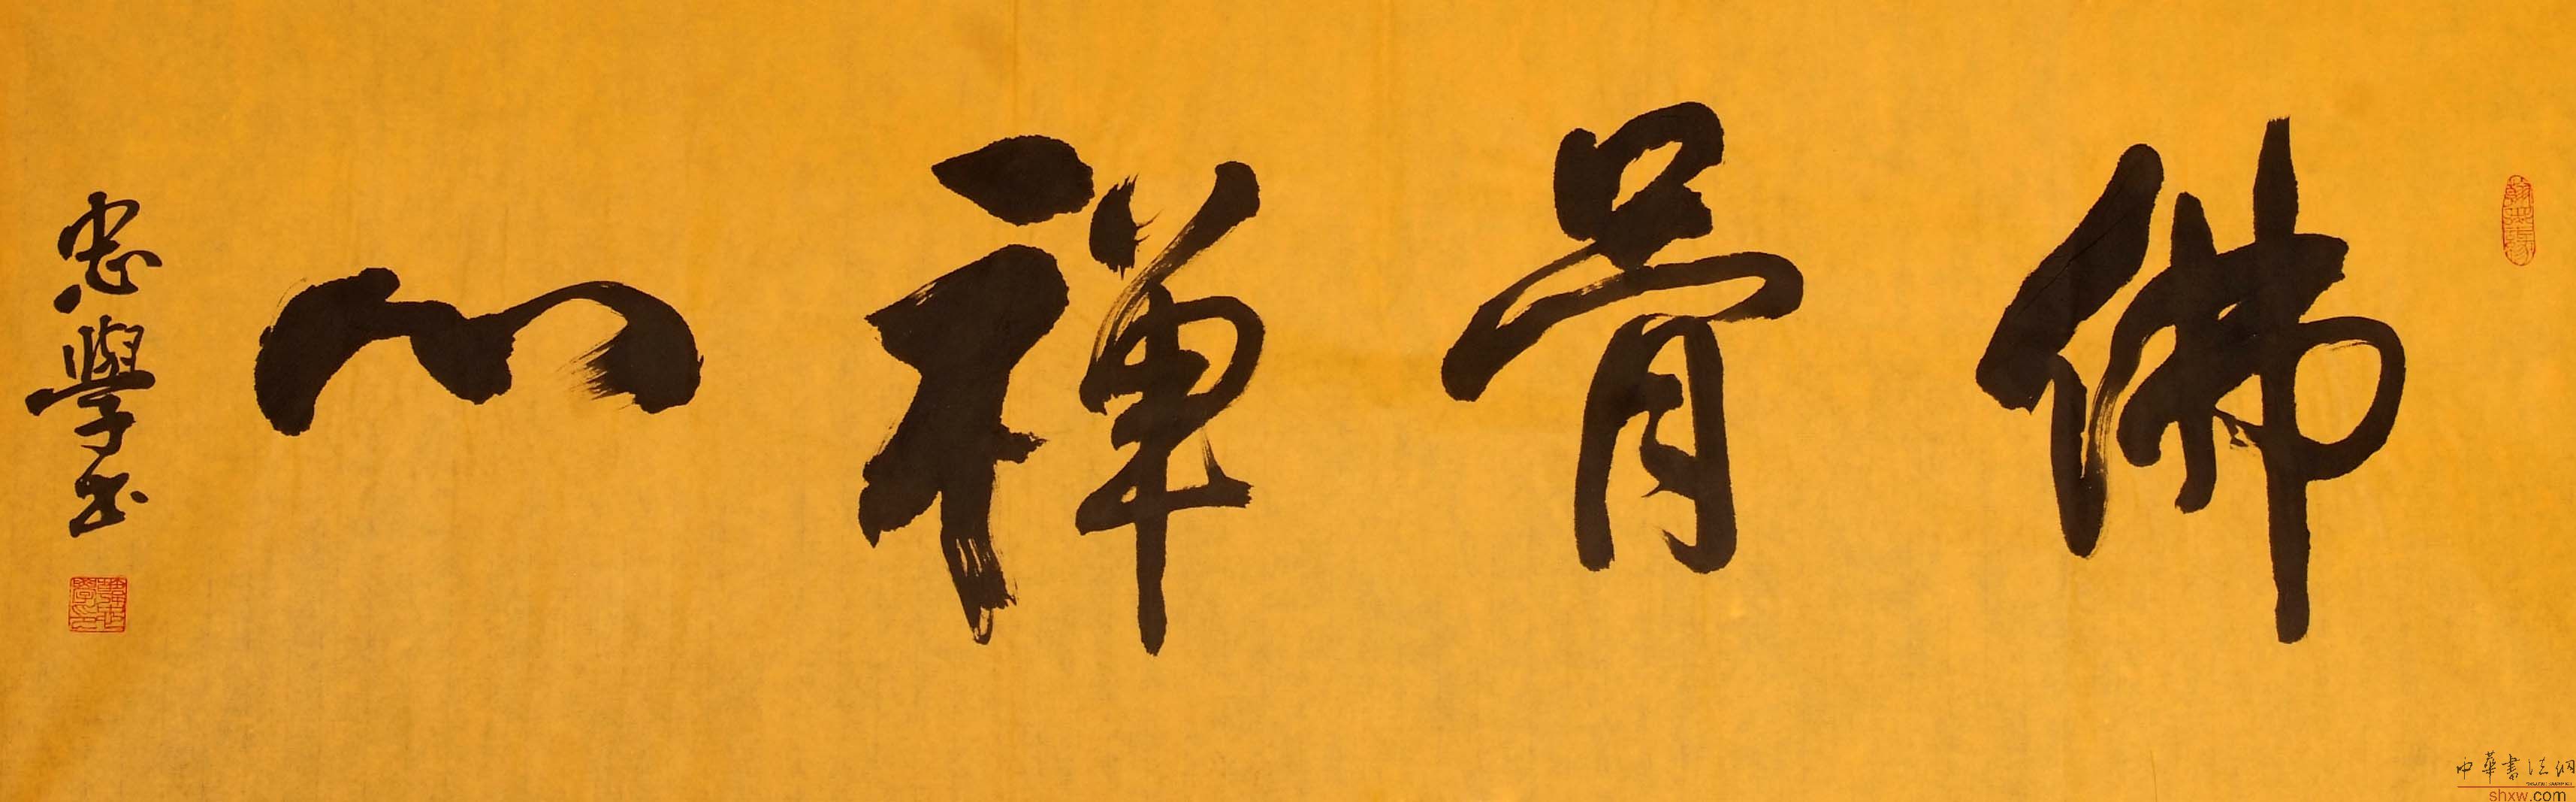 佛骨禅心
忠學书
中華書法網
shxw.com